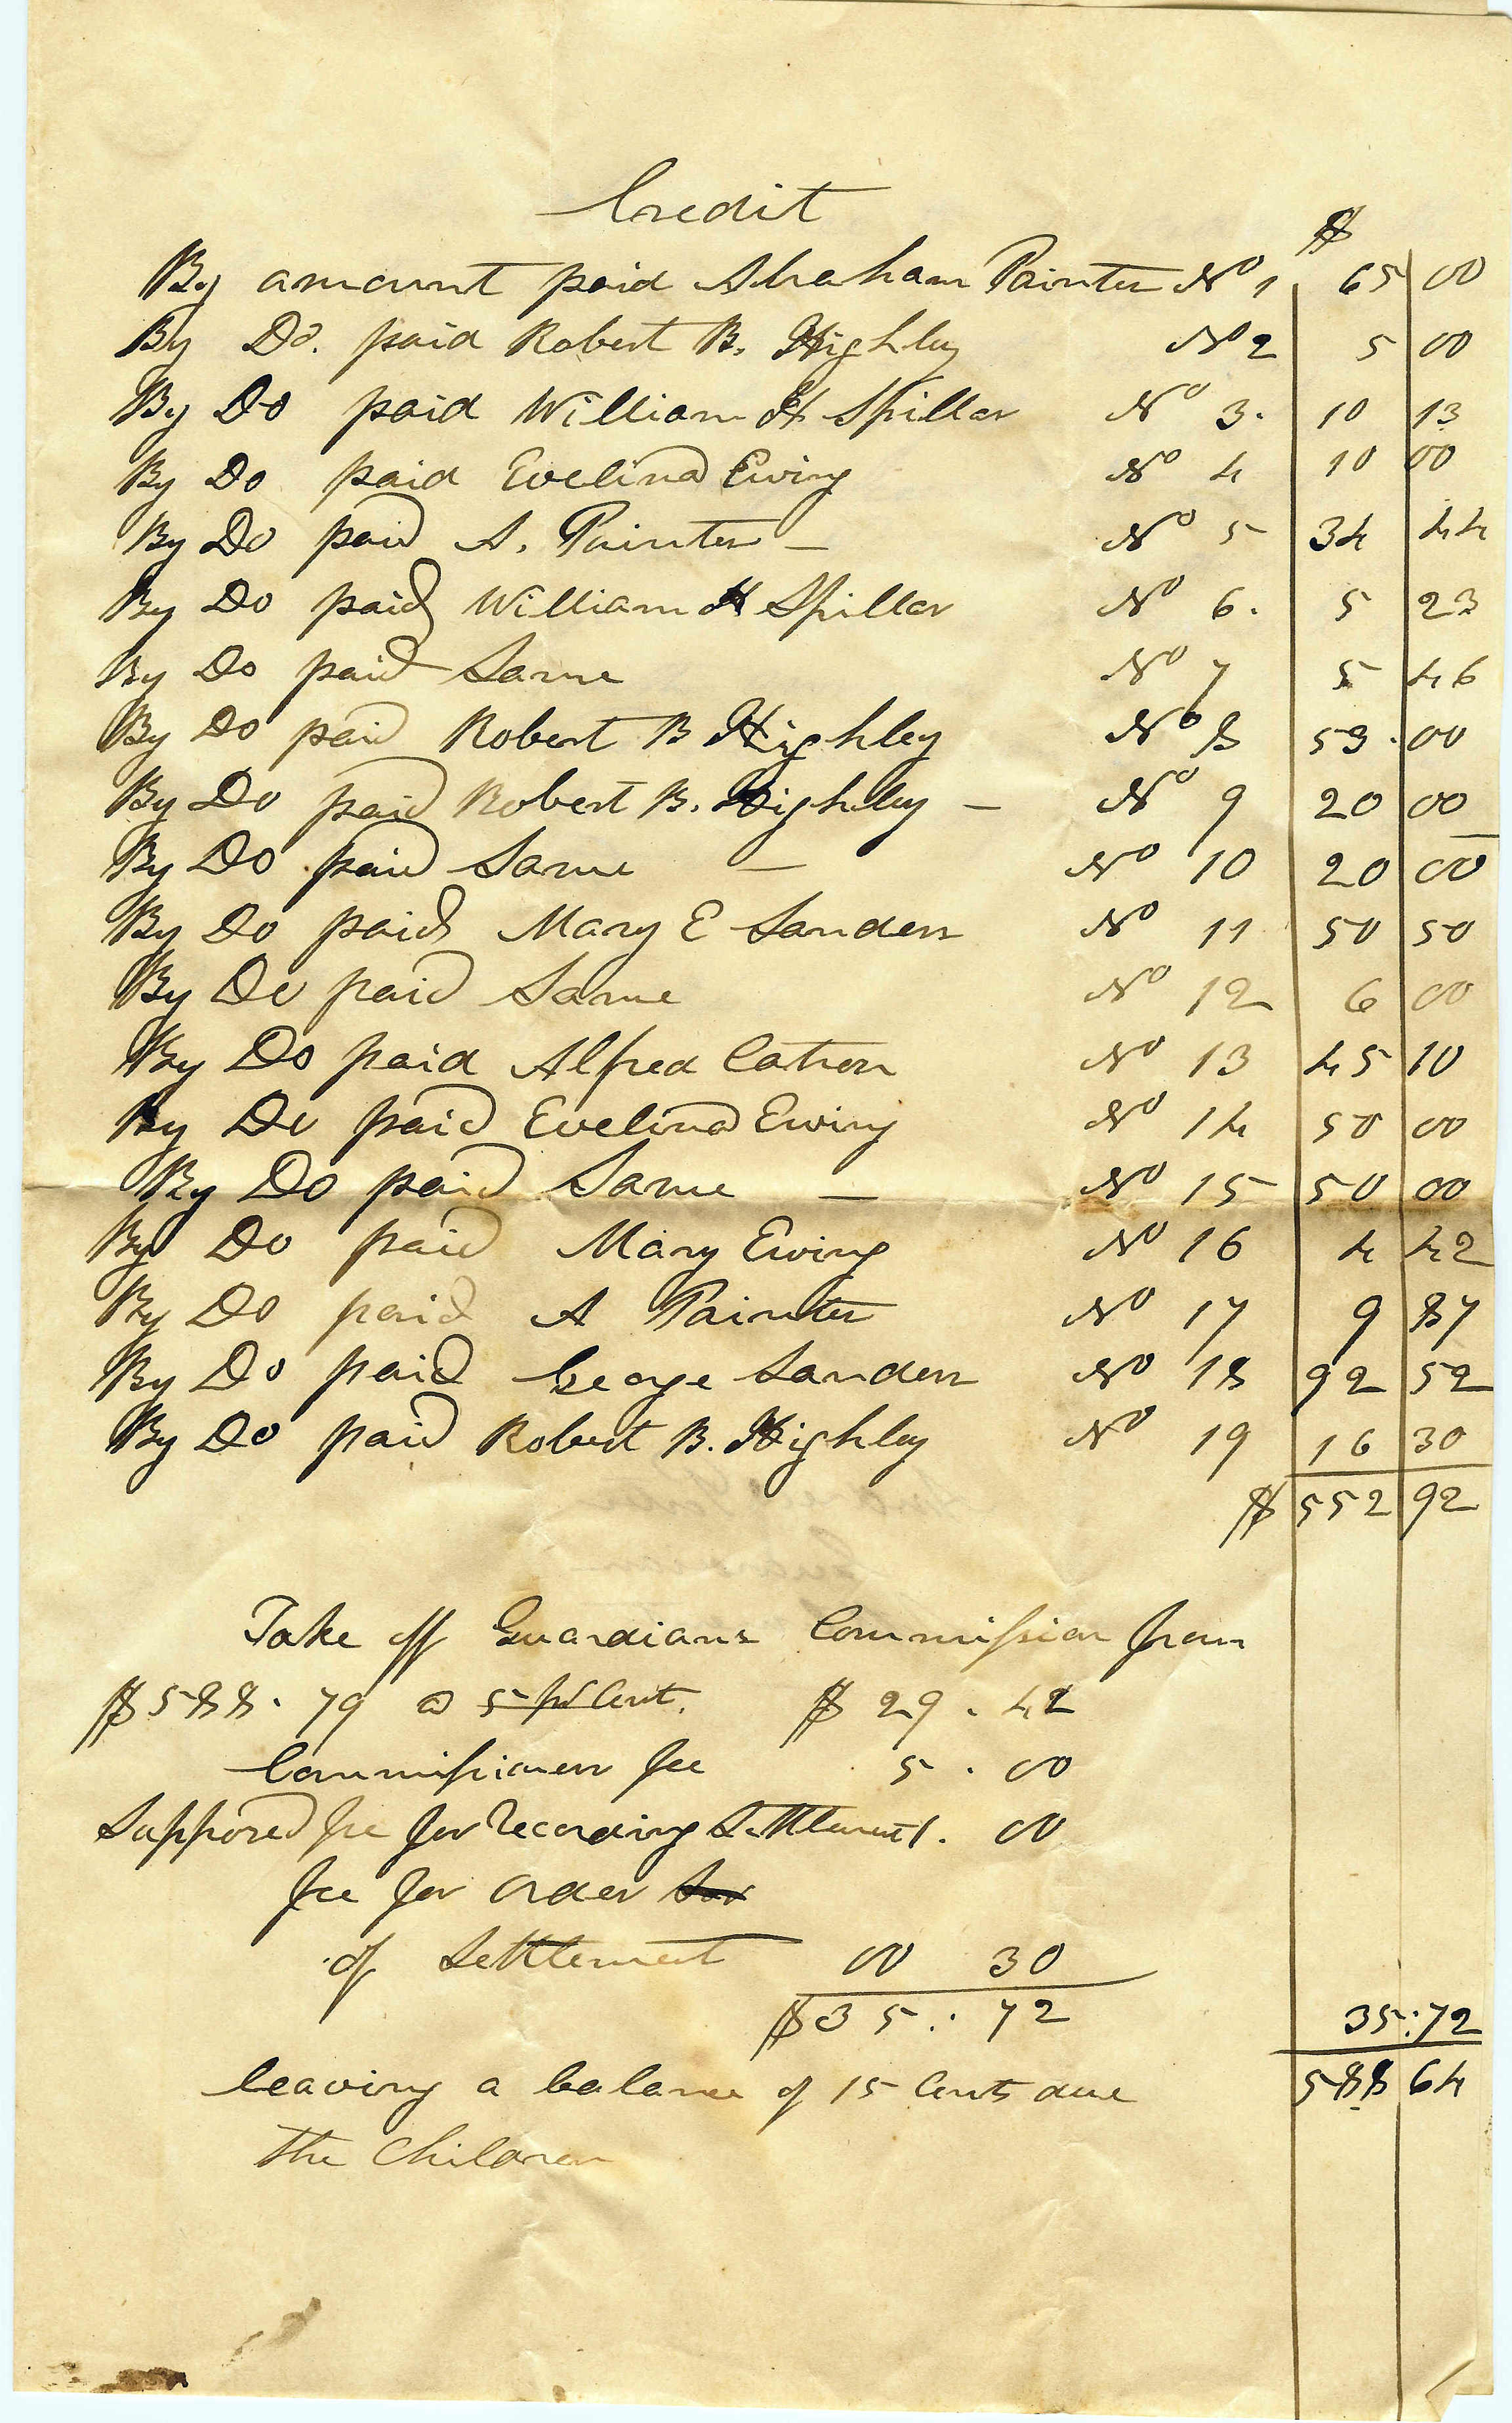 Credit
$
By amount paid Abraham Painter No 1 65 00
By Do. paid Robert B. Highley No 2 5 00
By Do paid William H Spiller No 3. 10 13
By Do paid Evelina Ewing No 4 10 00
By Do paid A. Painter — No 5 34 44
By Do paid William H Spiller No 6. 5 23
By Do paid Same No 7 5 46
By Do paid Robert B Highley No 8 53.00
By Do paid Robert B. Highley — No 9 20 00
By Do paid Same — No 10 20 00
By Do paid Mary E Sanders No 11 50 50
By Do paid Same No 12 6 00
By Do paid Alfred Catron No 13 45 10
By Do paid Evelina Ewing No 14 50 00
By Do paid Same — No 15 50 00
By Do paid Mary Ewing No 16 4 42
By Do paid A Painter No 17 9 87
By Do paid George Sanders No 18 92 52
By Do paid Robert B. Highley No 19 16 30
$ 552 92
Take off Guardians Commission from
$588.79 @ 5 pr Cent. $ 29.42
Commissioners fee 5.00
Supposed fee for recording Settlement 1.00
fee for order for
of Settlement 00 30
$35.:72 35:72
leaving a balance of 15 Cents due 588 64
the Children